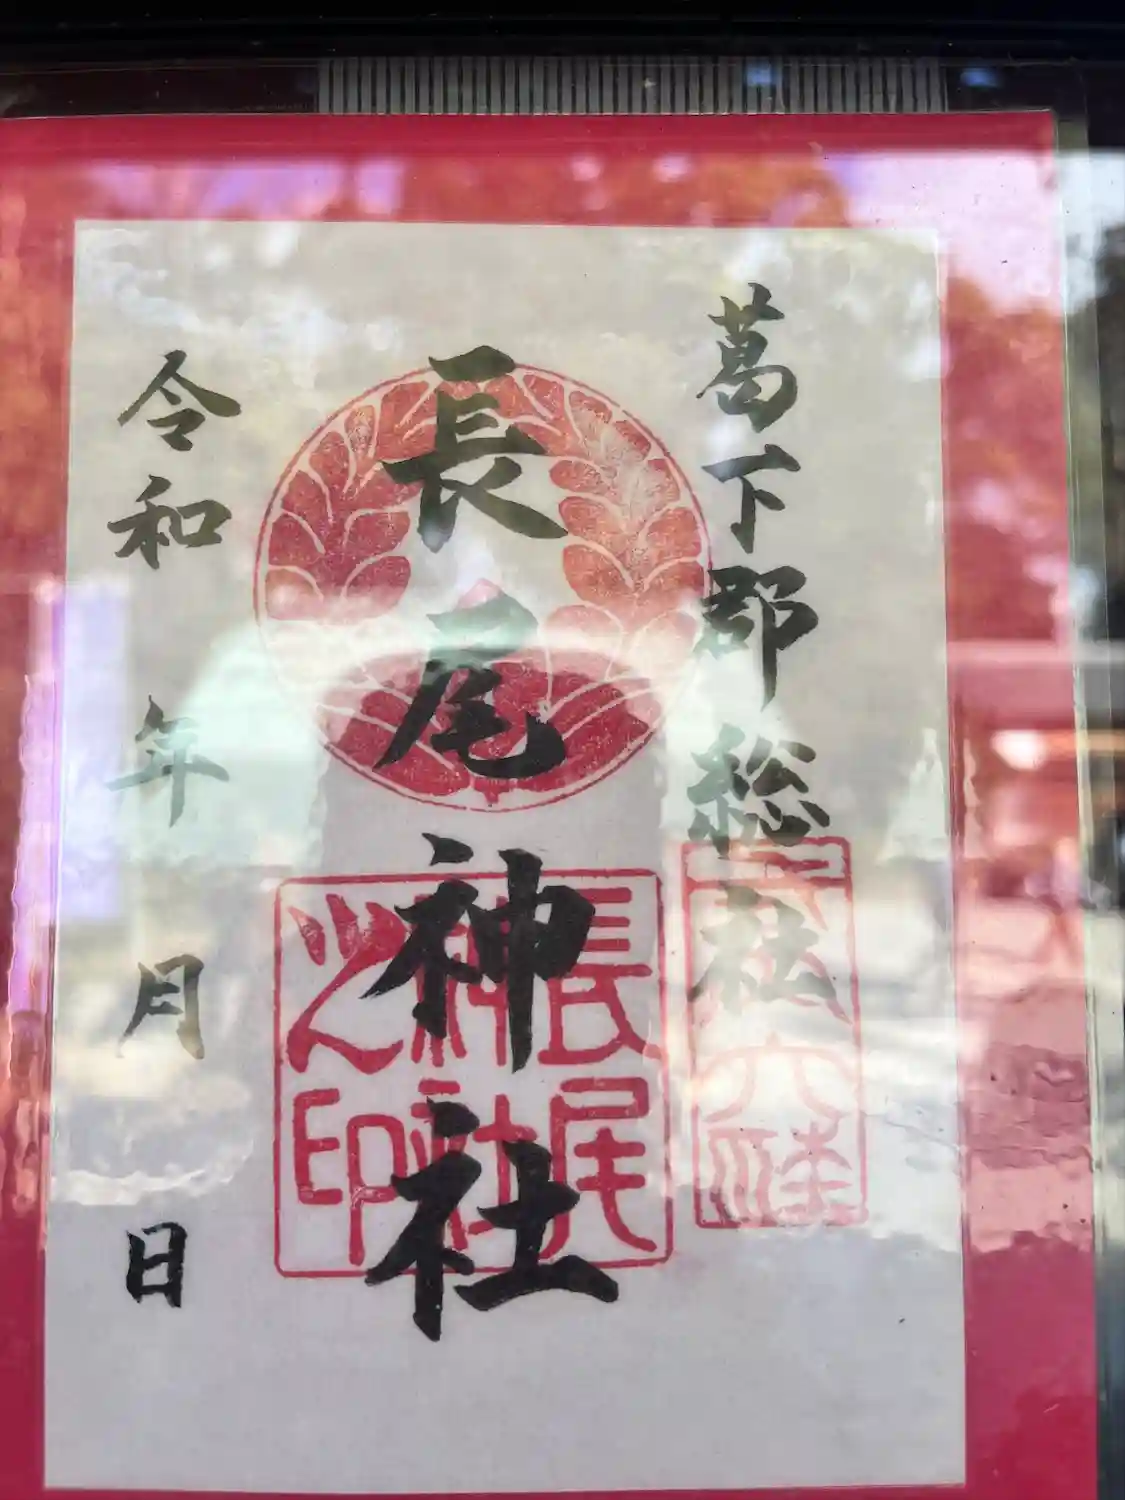 葛下郡総社
長尾神社
令和 年 月 日
長尾
神社
之印